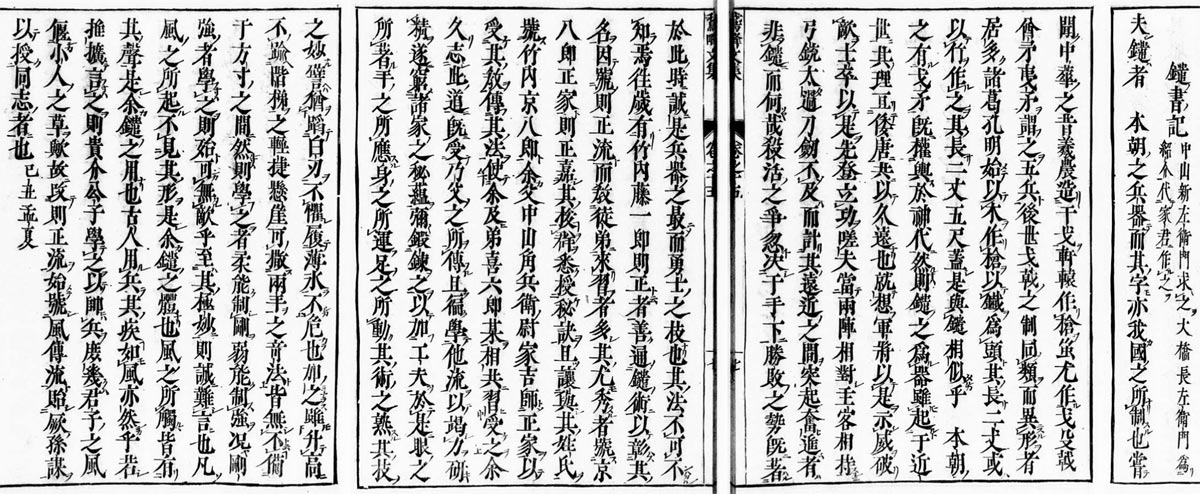 鑓書記 中山新左衛門求之大橋長左衛門為
紹介代家君作之
夫鑓者 本朝之兵器而其字亦我國之所制也甞
聞中華之昔羲農造干戈軒轅作槍蚩尤作戈殳戟
酋矛夷矛謂之五兵後世戈戟之制同類而異形者
居多諸葛孔明始以木作槍以鐵為頭其長二丈或
以竹作之其長二丈五尺蓋是與鑓相似乎 本朝
之有戈矛既權輿於神代然則鑓之為器雖起于近
世其理亘以久遠也就想軍將以是示威破
敵士卒以是先登立功嗟夫當兩陣相對主客相持
弓銃太遲刀劔不及而計其遠近之間突起奮進者
非鑓而何哉殺活之爭忽决于手下勝敗之勢既著
於此時誠是兵器之最而勇士之技也其法不可不
知焉往歲有竹內藤一郎則正者善通鑓術以彰其
名因號則正流而教徒弟來習者多其尤秀者號京
八郎正家則正嘉其悉授秘訣且讓與其姓氏
號竹內京八郎余父中山角兵衛尉家吉師正家以
受其教傳其法使余及弟喜六郎某相共習受之余
久志此道既受乃父之所傳且徧學他流以竭力研
精遂窮諸家之秘蘊彌鍛鍊之以加工夫於是眼之
所著手之所應身之所運足之所動其術之熟其技
之妙譬猶蹈白刃不懼履薄氷不危也加之雖升高
不踰階梯之輕捷懸崖可撒兩手之奇法皆無不備
于方寸之間然則學之者柔能制剛弱能制強況剛
強者學之則殆可無敵乎至其極妙則誠難言也凡
風之所起不見其形是余鑓之體也風之所觸皆有
其聲是余鑓之用也古人用兵其疾如風亦然乎若
推擴言之則貴介公子學之以帥兵庶幾君子之風
偃小人之草歟故改則正流始號風傳流貽厥孫謀
以授同志者也 己丑孟夏